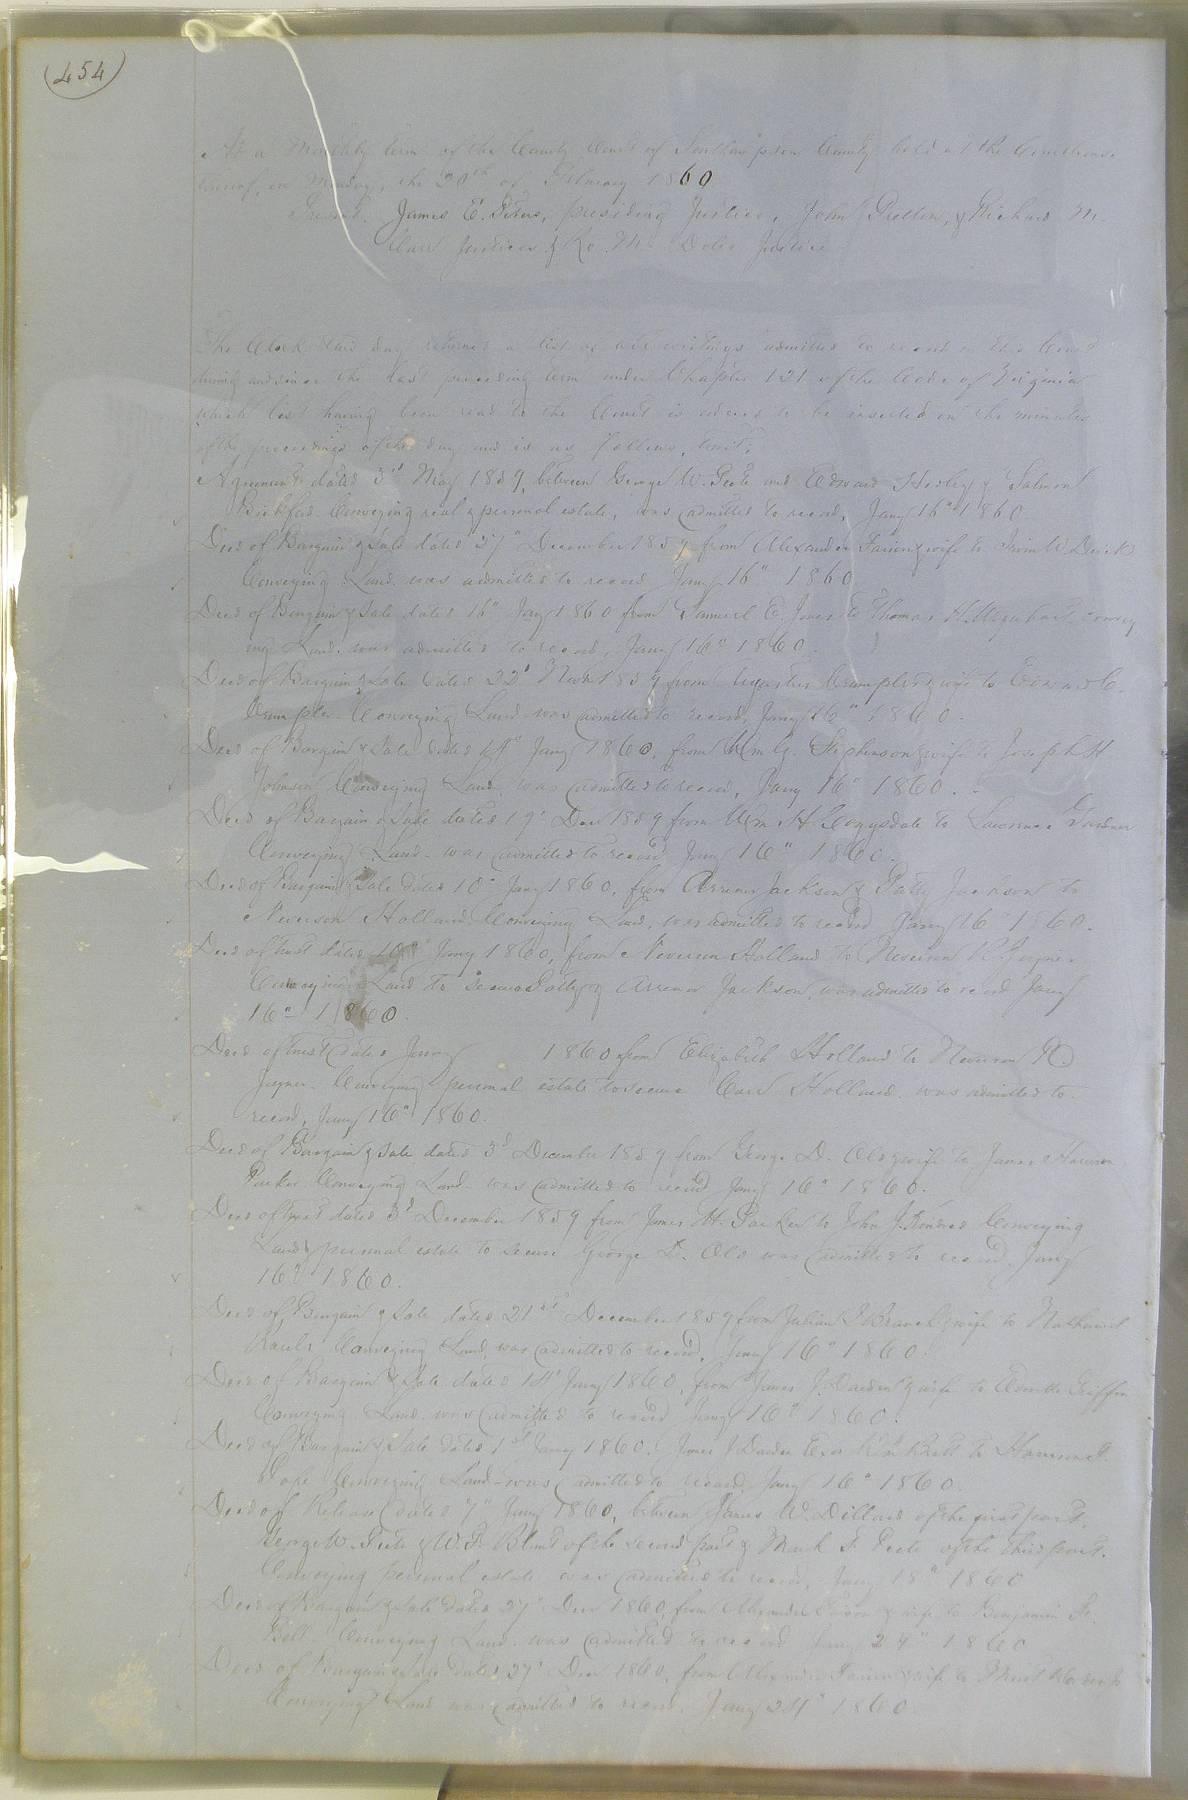 (454)
At a Monthly term of the County Court of Southampton County held at the Courthouse
thereof, on Monday, the 20th of February 1860
Present. James E. Peters, presiding Justice, John Pretlow, & Richard M.
Carr Justices & Ro. M. Justice
The Clerk this day returned a list of all writings admitted to record in this Court
during and since the last preceding term under Chapter 121 of the Code of Virginia
which list having been read to the Court is ordered to be inserted in the minutes
of the proceedings of the day and is as follows, towit:
Agreement dated 3d May 1859, between George W. Peete and Edward & Salmon
Conveying real & personal estate, was admitted to record, Jany 16" 1860
Deed of Bargain & Sale dated 27" December 1859 from Alexander & wife to
Conveying Land. was admitted to record Jany 16" 1860
Deed of Bargain & Sale dated 16" Jany 1860 from Samuel E. Jones to Thomas H. Convey
ing Land. was admitted to record, Jany 16" 1860.
Deed of Bargain & Sale dated 22d 1859 from & wife to Edward C.
Crumpler Conveying Land was admitted to record, Jany 16" 1860.
Deed of Bargain & Sale dated Jany 1860, from Wm G. Stephenson & wife to Joseph H.
Johnson Conveying Land, was admitted to record, Jany 16" 1860.
Deed of Bargain & Sale dated 19" Decr 1859 from Wm H. to Lawrence Gardner
Conveying Land - was admitted to record Jany 16" 1860.
Deed of Bargain & Sale dated 10" Jany 1860, from Jackson & Patty Jackson to
Neverson Holland Conveying Land, was admitted to record Jany 16" 1860.
Deed of trust dated 10th Jany 1860, from Neverson Holland to Neverson R. Joyner
Conveying Land to secure Patty & Jackson, was admitted to record Jany
16" 1860.
Deed of trust dated Jany 1860 from Elizabeth Holland to Neverson R
Joyner Conveying personal estate to secure Holland. was admitted to
record, Jany 16" 1860.
Deed of Bargain & Sale dated 3d December 1859 from George D. Old & wife to James Harrison
Parker Conveying Land - was admitted to record Jany 16" 1860.
Deed of trust dated 3d December 1859 from James H. Parker to John J. Kindred Conveying
Land & personal estate to secure George D. Old was admitted to record. Jany
16" 1860.
Deed of Bargain & Sale dated 21st December 1859 from Julian Branch & wife to Nathaniel
Conveying Land, was admitted to record, Jany 16" 1860.
Deed of Bargain & Sale dated Jany 1860, from James J. Darden & wife to Griffin
Conveying Land was admitted to record Jany 16" 1860.
Deed of Bargain & Sale dated 1st Jany 1860. James J. Darden to Harrison P.
Pope Conveying Land - was admitted to record Jany 16" 1860.
Deed of Release dated 7" Jany 1860, between James W. Dillard of the first part,
George W. Peete & W. F. Blunt of the second part & Mark S. Peete of the third part.
Conveying personal estate was admitted to record, Jany 18" 1860
Deed of Bargain & Sale dated 27" Decr 1860, from Alexander & wife to Benjamin F.
Bell. Conveying Land - was admitted to record Jany 24" 1860
Deed of Bargain & Sale dated 27" Decr 1860, from Alexander & wife to
Conveying Land was admitted to record. Jany 24" 1860